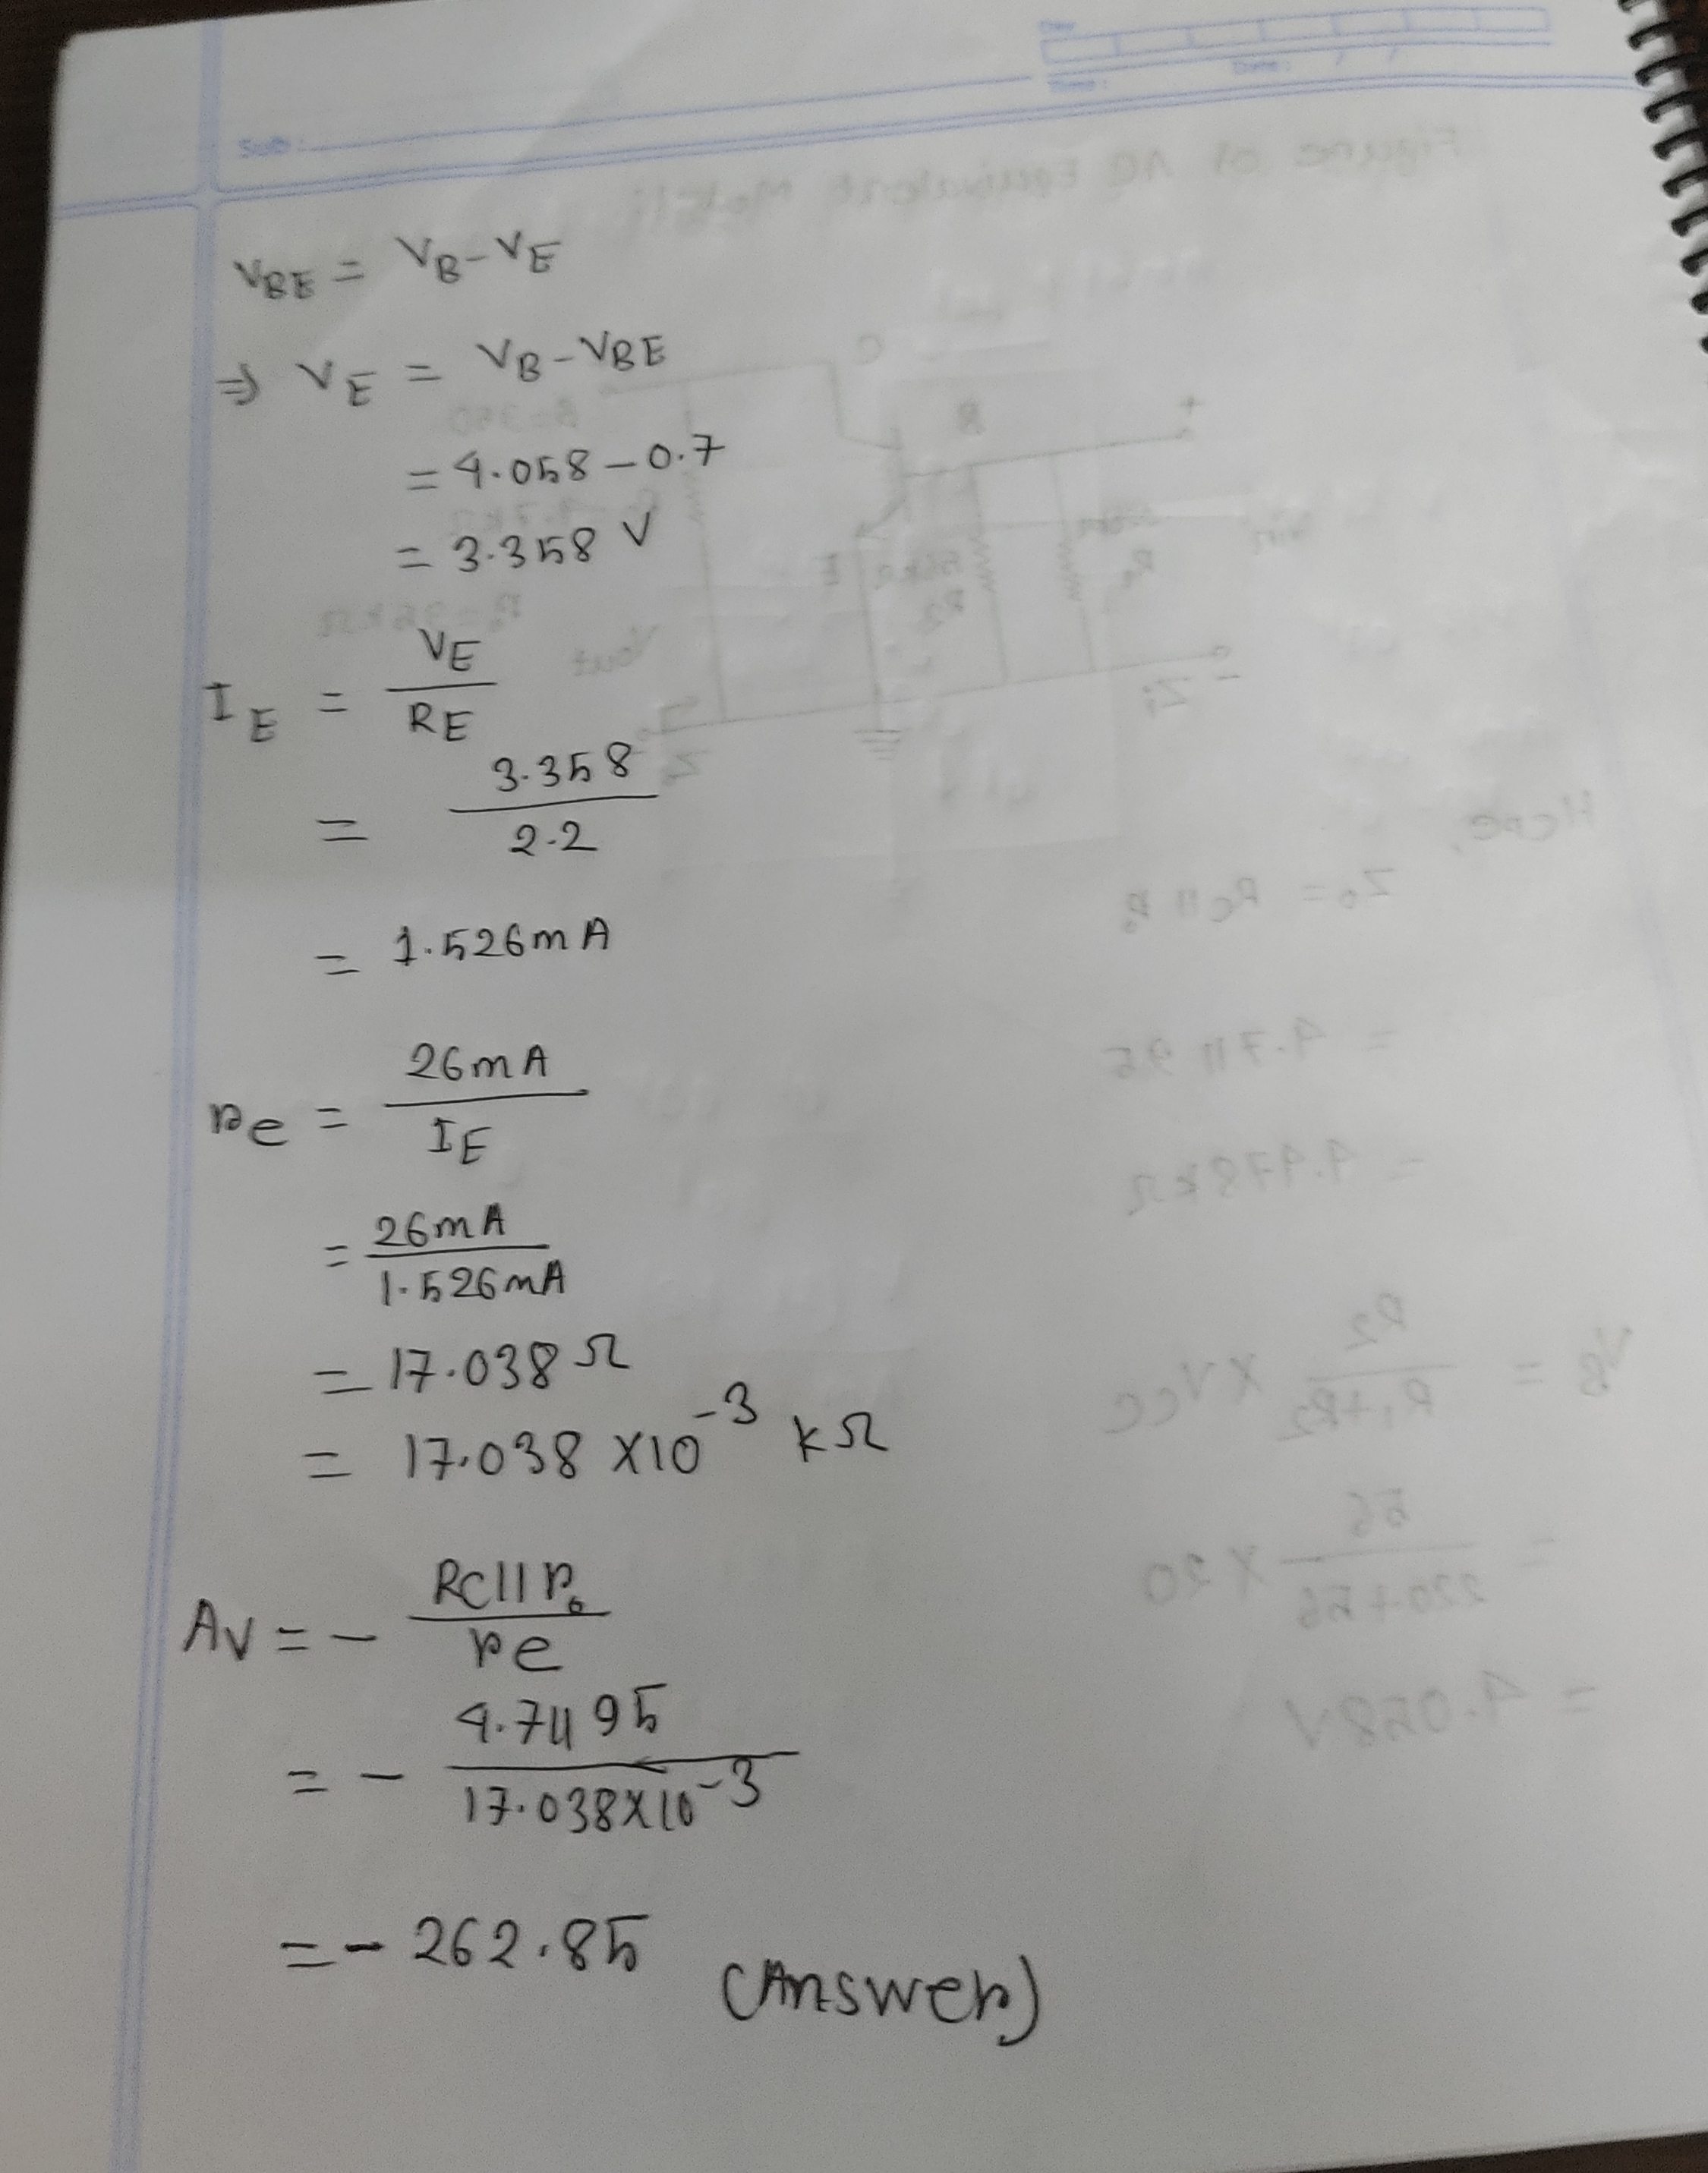 Sub:
Date:
V_BE = V_B - V_E
⇒ V_E = V_B - V_BE
= 4.058 - 0.7
= 3.358 V
I_E = V_E / R_E
= 3.358 / 2.2
= 1.526mA
re = 26mA / I_E
= 26mA / 1.526mA
= 17.038 Ω
= 17.038 × 10^-3 kΩ
Av = - RC||ro / re
= - 4.7||95 / 17.038×10^-3
= - 262.85 (Answer)